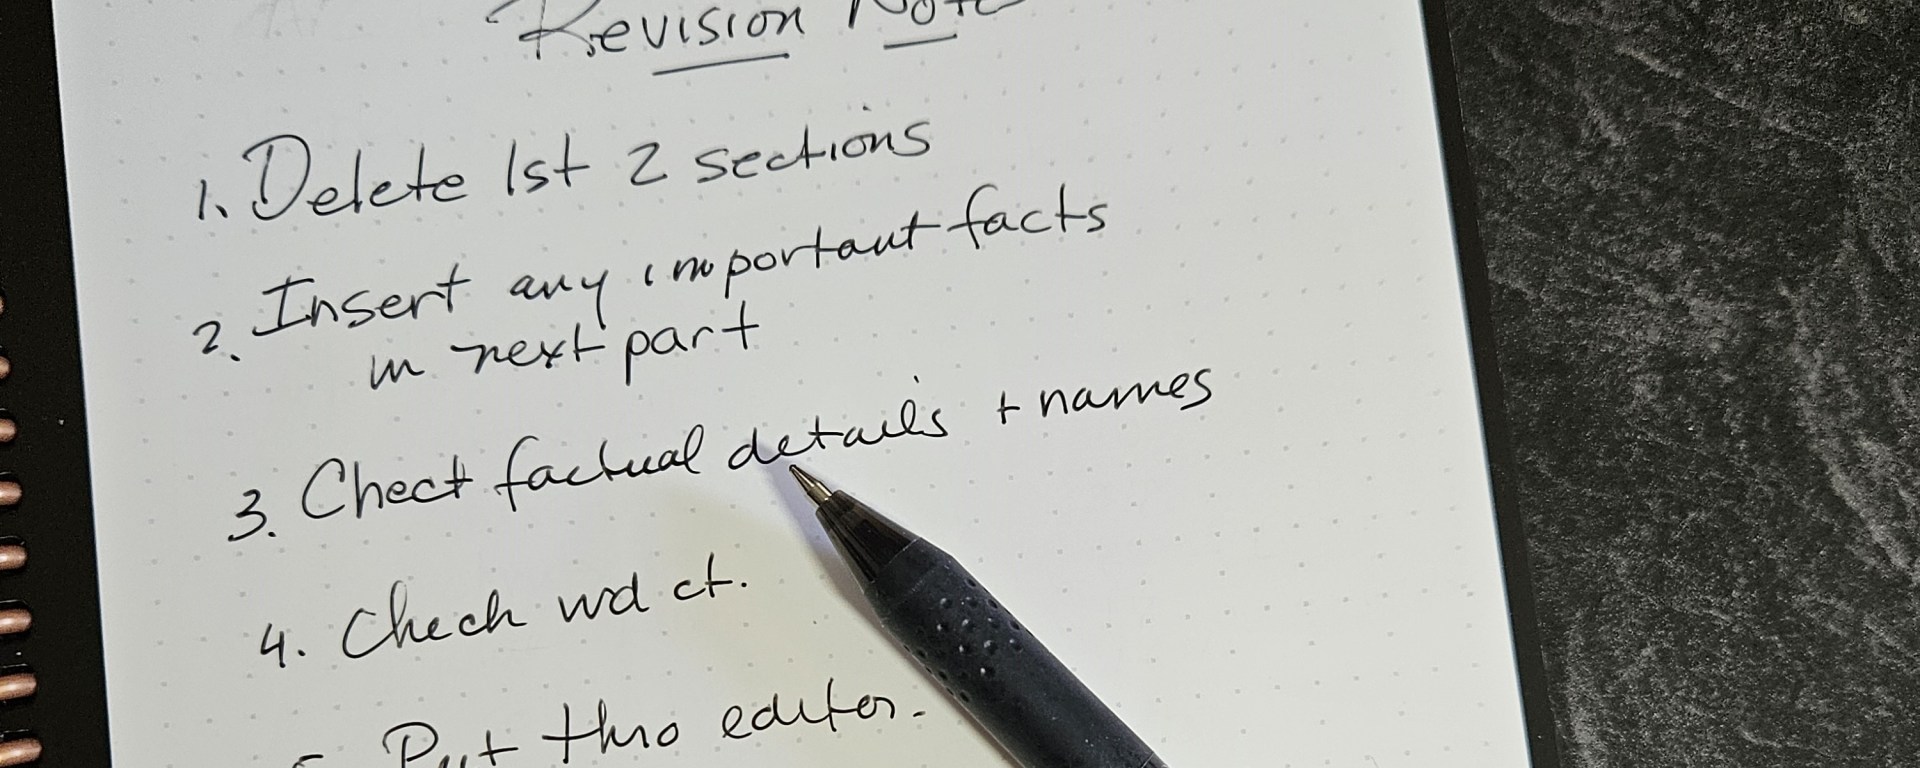 Revision Note
1. Delete 1st 2 sections
2. Insert any important facts
in next part
3. Check factual details + names
4. Check wd ct.
5. Put thro editor.